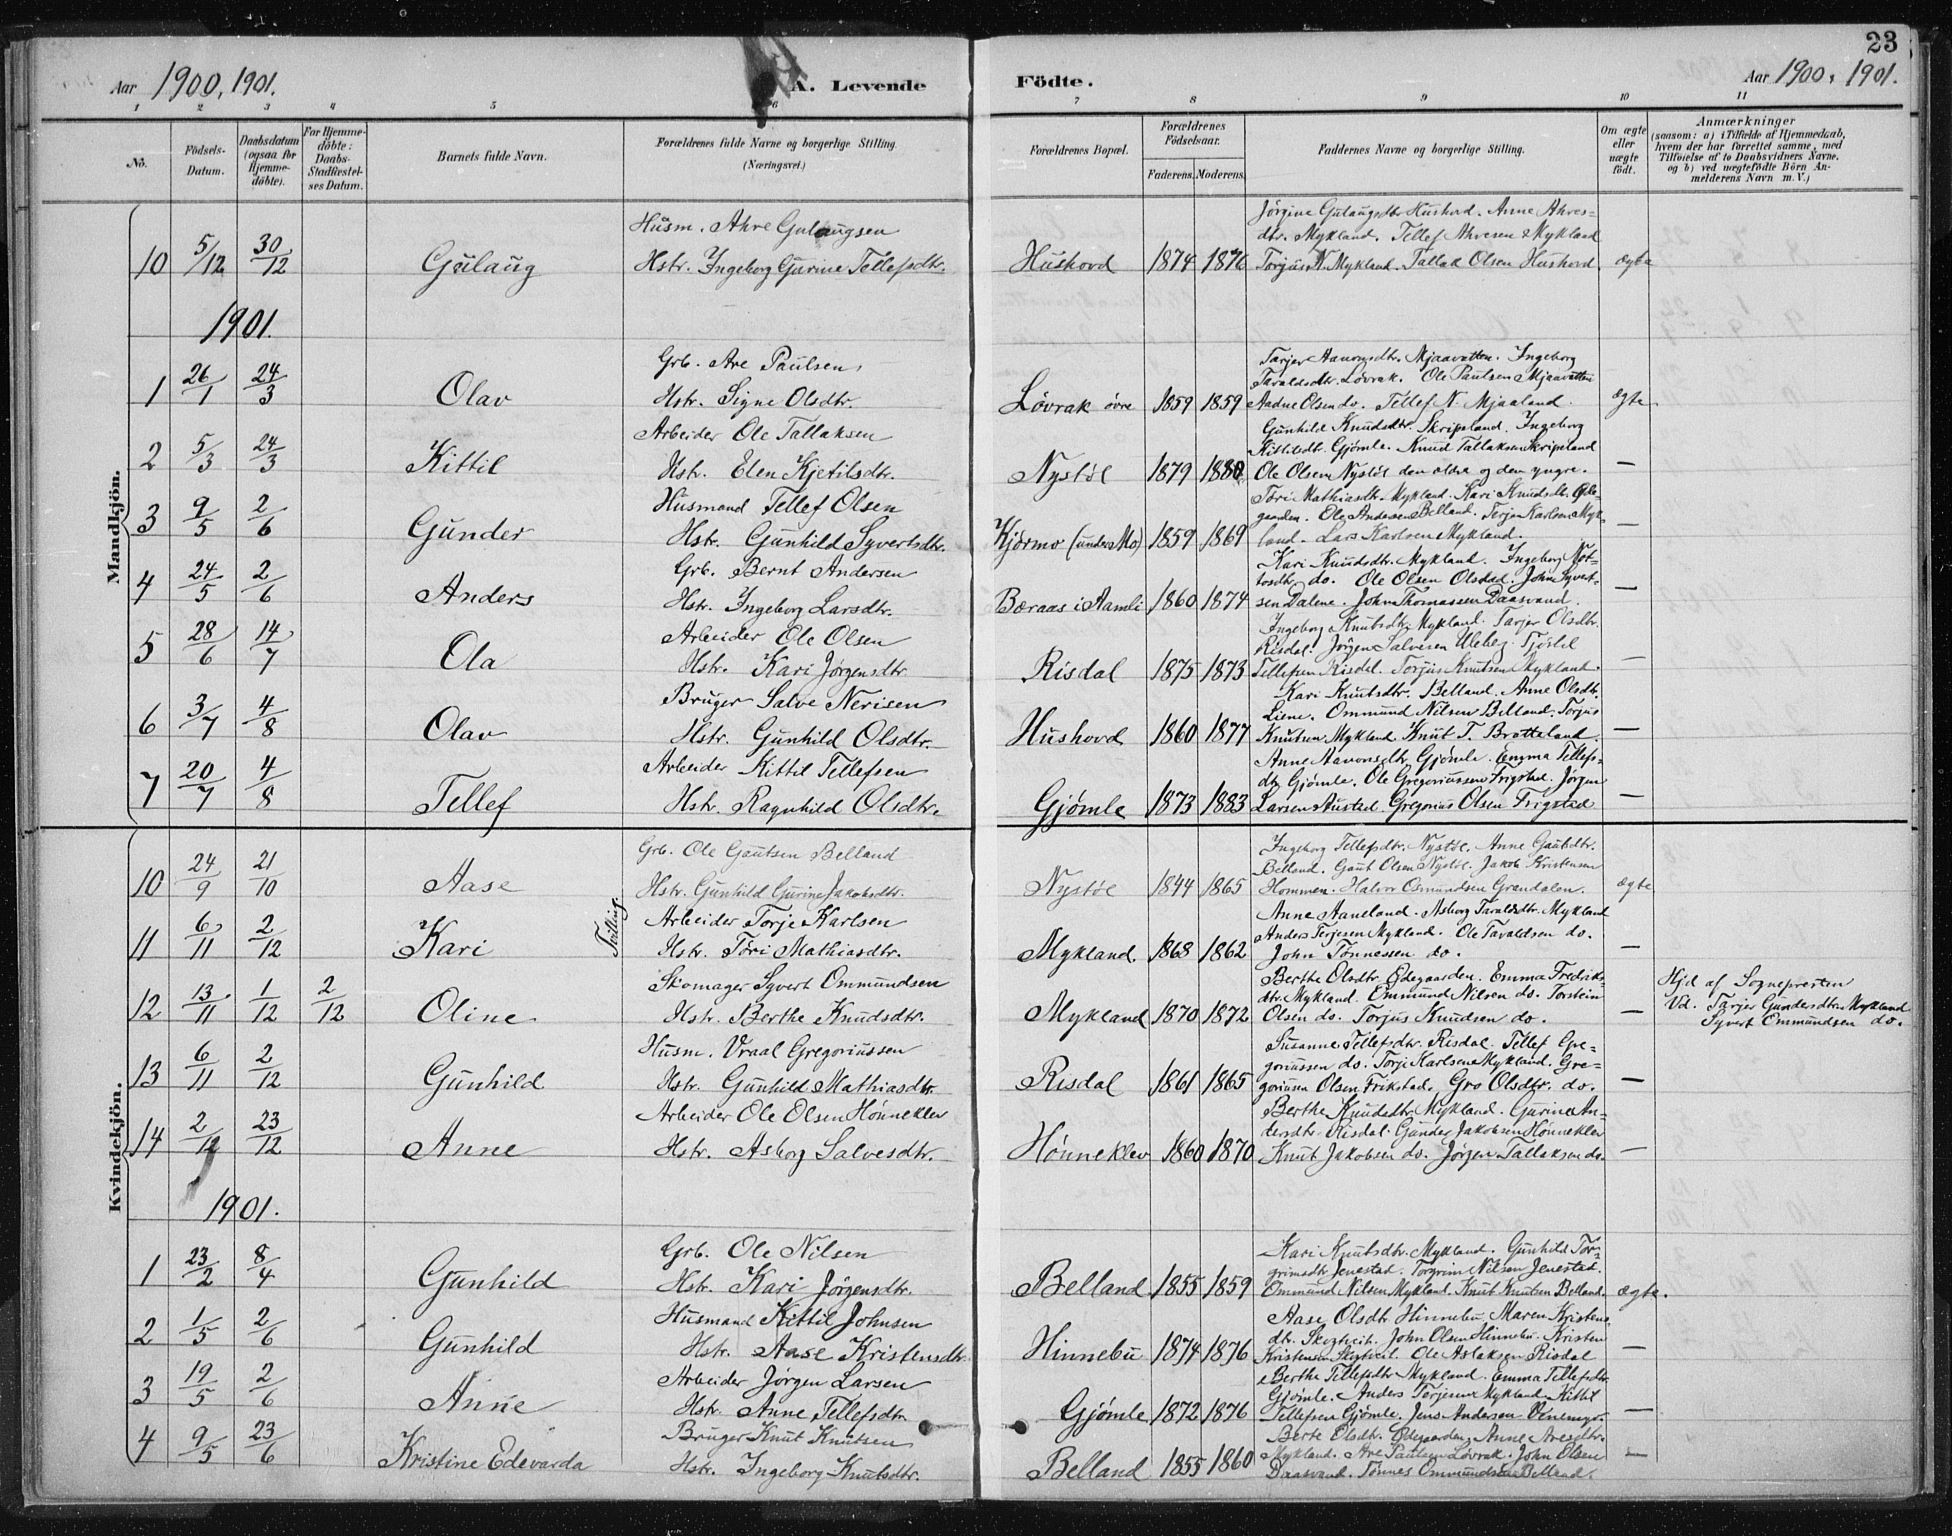 23
Aar 1900, 1901.
A. Levende
Födte.
Aar 1900, 1901.
1 2 3 4 5 6 7 8 9 10 11
No.
Födsels-Datum.
Daabsdatum (ogsaa for Hjemmedöbte).
For Hjemmedöbte: Daabs-Stadfæstelses Datum.
Barnets fulde Navn.
Forældrenes fulde Navne og borgerlige Stilling.
(Næringsvei.)
Forældrenes Bopæl.
Forældrenes Födselsaar.
Faderens. Moderens.
Faddernes Navne og borgerlige Stilling.
Om ægte eller uægte födt.
Anmærkninger
(saasom: a) i Tilfælde af Hjemmedaab, hvem der har forrettet samme, med Tilföielse af to Daabsvidners Navne, og b) ved uægtefödte Börn Anmelderens Navn m. V.)
Mandkjön.
10 5/12 30/12 Gulaug
Husm. Ahre Gulaugsen
Hstr. Ingeborg Gurine Tellefsdtr.
Hushovd 1874 1876
Jörgine Gulaugsdtr Hushovd. Anne Ahres-
dtr. Mykland. Tellef Ahresen Mykland
Torjus N. Mykland. Tallak Olsen Hushovd. ægte
1901.
1 26/1 24/3 Olav
Grb. Are Paulsen
Hstr. Signe Olsdtr.
Lövrak övre 1859 1859
Tarjer Aanonsdtr. Mjaavatten. Ingeborg
Taraldsdtr. Lövrak. Ole Paulsen Mjaavatten
Aadne Olsen do. Tellef N. Mjaaland. ægte
2 5/3 24/3 Kittil
Arbeider Ole Tallaksen
Hstr. Elen Kjetilsdtr.
Nystöl 1879 1880
Gunhild Knudsdtr. Skripeland. Ingeborg
Kittilsdtr. Gjömle. Knud Tallaksen Skripeland
Ole Olsen Nystöl den eldre og den yngre. —
3 9/5 2/6 Gunder
Husmand Tellef Olsen
Hstr. Gunhild Syvertsdtr.
Kjörmo (under Mo) 1859 1869
Töri Mathiasdtr. Mykland. Kari Knudsdtr. Öde-
gaarden. Ole Andersen Belland. Torje Karlsen Myk-
land. Lars Karlsen Mykland. —
4 24/5 2/6 Anders
Grb. Bernt Andersen
Hstr. Ingeborg Larsdtr.
Bæraas i Aamli 1860 1874
Kari Knudsdtr. Mykland. Ingeborg
do. Ole Olsen Olsdad. John Syvert-
sen Dalene. John Thomassen Daasvand. —
5 28/6 14/7 Ola
Arbeider Ole Olsen
Hstr. Kari Jörgensdtr
Risdal 1875 1873
Ingeborg Knutsdtr. Mykland. Tarjer Olsdtr.
Risdal. Jörgen Salvesen Uleberg. Tjöstel
Tellefsen Risdal. Torjus Knutsen Mykland. —
6 3/7 4/8 Olav
Bruger Salve Nerisen
Hstr. Gunhild Olsdtr.
Hushovd 1860 1877
Kari Knutsdtr. Belland. Anne Olsdtr.
Liene. Ommund Nilsen Belland. Torjus
Knutsen Mykland. Knut T. Bratteland. —
7 20/7 4/8 Tellef
Arbeider Kittil Tellefsen
Hstr. Ragnhild Olsdtr.
Gjömle 1873 1883
Anne Aavonsdtr. Gjömle. Emma Tellefs-
dtr. Gjömle. Ole Gregoriussen Frigstad. Jörgen
Larsen Austad. Gregorius Olsen Frigstad —
Kvindekjön.
10 24/9 21/10 Aase
Grb. Ole Gautsen Belland
Hstr. Gunhild Gurine Jakobsdtr.
Nystöl 1844 1865
Ingeborg Tellefsdtr. Nystöl. Anne Gautsdtr.
Belland. Gaut Olsen Nystöl. Jakob Kristensen
Hommen. Halvor Osmundsen Grandalen. ægte
11 6/11 2/12 Kari
Tvilling.
Arbeider Torje Karlsen
Hstr. Töri Mathiasdtr.
Mykland. 1868 1862
Anne Aaneland. Asborg Taraldsdtr. Mykland
Anders Terjesen Mykland. Ole Taraldsen do.
John Tönnessen do. —
12 13/11 1/12 2/12 Oline
Skomager Syvert Ommundsen
Hstr. Berthe Knudsdtr.
Mykland 1870 1872
Berthe Olsdtr. Ödegaarden. Emma Fredriks-
dtr. Mykland. Ommund Nilsen do. Torstein
Olsen do. Torjus Knudsen do. —
Hjd af Sognepresten
Vd. Tarjer Gundersdtr Mykland
Syvert Ommundsen do.
13 6/11 2/12 Gunhild
Husm. Vraal Gregoriussen
Hstr. Gunhild Mathiasdtr.
Risdal 1861 1865
Susanne Tellefsdtr. Risdal. Tellef Gre-
goriussen do. Torje Karlsen Mykland. Gre-
gorius Olsen Frikstad. Gro Olsdtr. do. —
14 2/12 23/12 Anne
Arbeider Ole Olsen Hönneklev
Hstr. Asborg Salvesdtr.
Hönneklev 1860 1870
Berthe Knudsdtr. Mykland. Gurine An-
dersdtr. Risdal. Gunder Jakobsen Hönneklev
Knut Jakobsen do. Jörgen Tallaksen do. —
1901.
1 23/2 8/4 Gunhild
Grb. Ole Nilsen
Hstr. Kari Jörgensdtr.
Belland 1855 1859
Kari Knutsdtr. Mykland. Gunhild Tor-
grimsdtr Jenestad. Torgrim Nilsen Jenestad.
Ommund Nilsen Mykland. Knut Knutsen Belland. ægte.
2 1/5 2/6 Gunhild
Husmand Kittil Johnsen
Hstr. Aase Kristensdtr.
Hinnebu 1874 1876
Aase Olsdtr Hinnebu. Maren Kristens-
dtr. Skogtveit. John Olsen Hinnebu. Kristen
Kristensen Skogtveit. Ole Aslaksen Risdal —
3 19/5 2/6 Anne
Arbeider Jörgen Larsen
Hstr. Anne Tellefsdtr
Gjömle 1872 1876
Berthe Tellefsdtr Mykland. Emma Tellefsdtr.
Gjömle. Anders Terjesen Mykland. Kittil
Tellefsen Gjömle. Jens Andersen —
4 9/5 23/6 Kristine Edevarda
Bruger Knut Knutsen
Hstr. Ingeborg Knutsdtr.
Belland 1855 1860
Berte Olsdtr. Ödegaarden. Anne Aresdtr.
Mykland. Are Paulsen Lövrak. John Olsen
Daasvand. Tönnes Ommundsen Belland. —